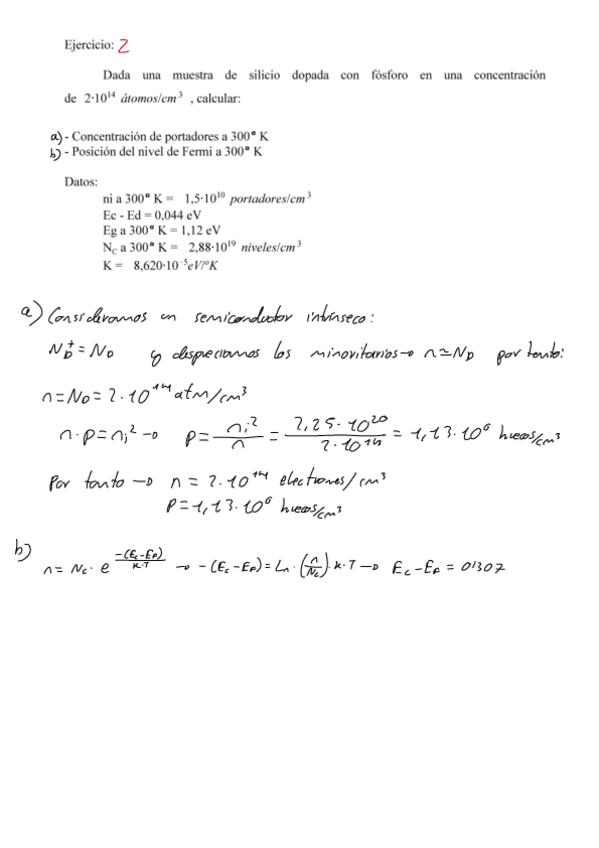 Ejercicio: 2
Dada una muestra de silicio dopada con fósforo en una concentración
de 2·10¹⁴ átomos/cm³ , calcular:
a) - Concentración de portadores a 300° K
b) - Posición del nivel de Fermi a 300° K
Datos:
ni a 300° K = 1,5·10¹⁰ portadores/cm³
Ec - Ed = 0,044 eV
Eg a 300° K = 1,12 eV
N_C a 300° K = 2,88·10¹⁹ niveles/cm³
K = 8,620·10⁻⁵eV/°K
a) Consideramos un semiconductor intrínseco:
N_D⁺ = N_D y despreciamos los minoritarios → n ≃ N_D por tanto:
n = N_D = 2·10¹⁴ atm/cm³
n·p = n_i² → p = n_i²/n = 2,25·10²⁰/2·10¹⁴ = 1,13·10⁶ huecos/cm³
Por tanto → n = 2·10¹⁴ electrones/cm³
P = 1,13·10⁶ huecos/cm³
b) n = N_c · e^(-(E_c-E_F)/K·T) → -(E_c-E_F) = Ln·(n/N_c)·K·T → E_c-E_F = 0'307